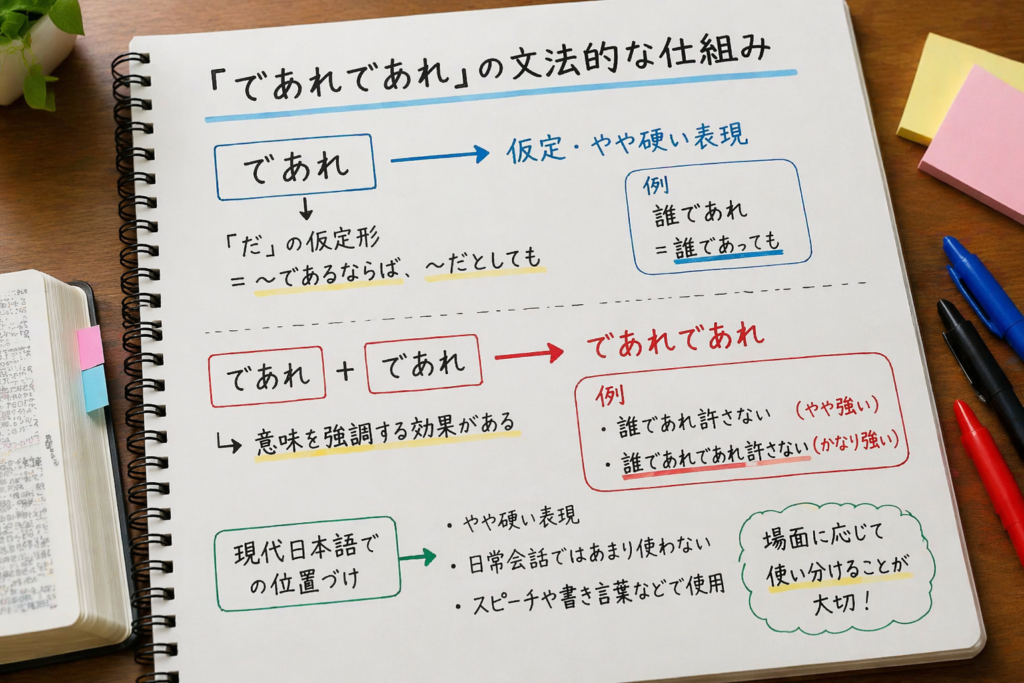 「であれであれ」の文法的な仕組み
であれ
仮定・やや硬い表現
「だ」の仮定形
=〜であるならば、〜だとしても
例
誰であれ
=誰であっても
であれ + であれ
であれであれ
意味を強調する効果がある
例
・誰であれ許さない (やや強い)
・誰であれであれ許さない(かなり強い)
現代日本語で
の位置づけ
・やや硬い表現
・日常会話ではあまり使わない
・スピーチや書き言葉などで使用
場面に応じて
使い分けることが
大切！